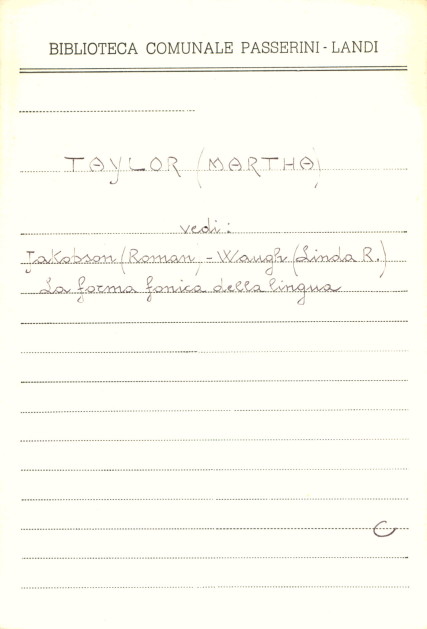 BIBLIOTECA COMUNALE PASSERINI - LANDI
TAYLOR (MARTHA)
vedi:
Jakobson (Roman) - Waugh (Linda R.)
La forma fonica della lingua
C